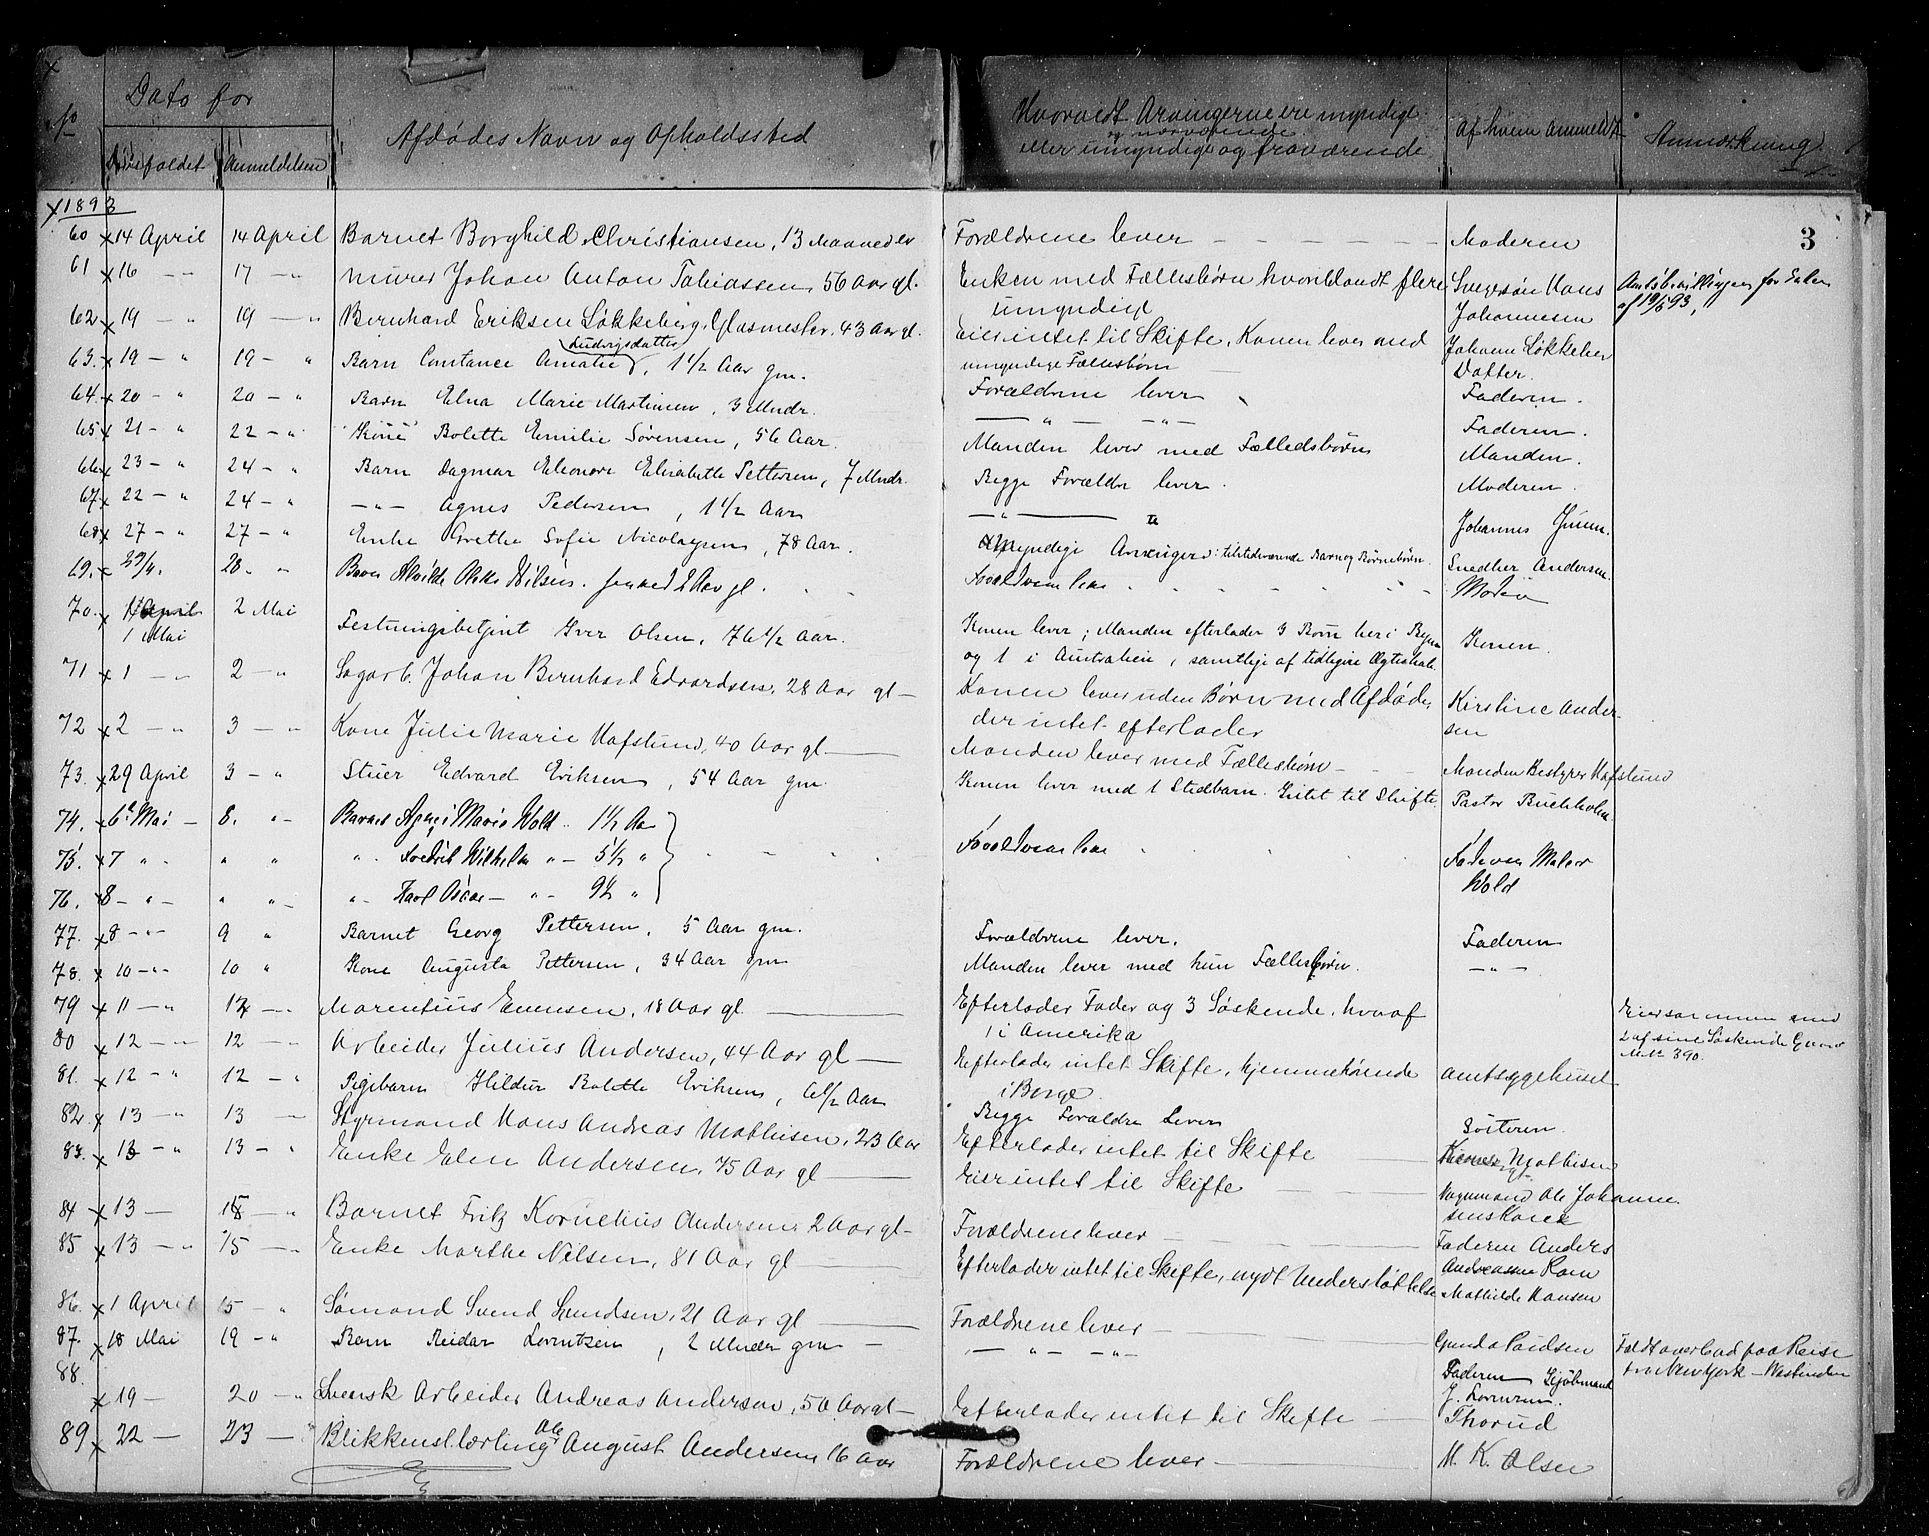 No
Dato for
Dødsfaldet Anmeldelsen
Afdødes Navn og Opholdssted
Hvorvidt Arvingerne ere myndige
og nærværende
eller umyndige og fraværende
Af hvem anmeldt
Anmærkning
3
1893
60 14 April 14 April Barnet Borghild Christiansen, 13 Maaneder Forældrene lever Moderen
61 16 — 17 — Murer Johan Anton Tobiassen, 56 Aar gl. Enken med Fællesbørn hvoriblandt flere Svigersøn Hans
umyndige Johannesen
af 19/5 93,
62 19 — 19 — Bernhard Eriksen Løkkeberg, Glasmester, 43 Aar gl. Eier intet til Skifte, Konen lever med Johanne Løkkeber
umyndige Fællesbørn Datter.
63. 19 — 19 — Barn Constance Amalie Ludvigsdatter, 1 1/2 Aar gm. Forældrene lever Faderen.
64. 20 — 20 — Barn Elna Marie Martinsen, 3 Mndr. — " — Faderen.
65 21 — 22 — Kone Bolette Emilie Sørensen, 56 Aar. Manden lever med Fælledsbørn Manden.
66 23 — 24 — Barn Dagmar Eleonore Elisabette Pettersen, 7 Mndr. Begge Forældre lever. Moderen.
67. 22 — 24 — — " — Agnes Pedersen, 1 1/2 Aar — " — Johannes
68 27 — 27 — Enke Grethe Sofie Nicolaysen, 78 Aar. Myndige Arvinger: tilstedeværende Barn og Børnebørn. Snedker Andersen.
69. 27/4. 28. " Barn 2 Aar gl. Forældrene lever Moder
70. 1 Mai 2 Mai Festningsbetjent Iver Olsen, 76 1/2 Aar. Konen lever; Manden efterlader 3 Børn her i Byen Konen.
og 1 i Australien, samtlige af tidligere Ægteskab.
71 1 — 2 — Sagarb. Johan Bernhard Edvardsen, 28 Aar gl — Konen lever uden Børn med Afdøde, Kirstine Ander-
der intet efterlader sen
72 2 — 3 — Kone Julie Marie Hafslund, 40 Aar gl. Manden lever med Fællesbørn Manden Bestyrer Hafslund
73. 29 April 3 — Stuer Edvard Eriksen, 54 Aar gm. Konen lever med 1 Stedbarn. Intet til Skifte. Pastor Buchholm
74. 6 Mai — 8. " Barnet Agnes Marie Wold 1 1/2 Aar
75 7 " " " Fredrik Wilhelm " — 5 1/2 " Forældrene lever Faderen Maler
76. 8 — " — " " Karl Oscar — " — 9 1/2 " Wold
77. 8 — 9 " Barnet Georg Pettersen, 5 Aar gm. Forældrene lever. Faderen
78. 10 — 10 " Kone Augusta Pettersen, 34 Aar gm Manden lever med kun Fællesbørn. — " —
79 11 — 12 — Marentius Evensen, 18 Aar gl. Efterlader Fader og 3 Søskende, hvoraf
1 i Amerika
Eier sammen med
2 af sine Søskende Gaard
M.№ 390.
80 12 — 12 — Arbeider Julius Andersen, 44 Aar gl — Efterlader intet Skifte, hjemmehørende Amtsygehuset
i Borge.
81. 12 — 12 — Pigebarn Hildur Bolette Eriksen, 6 1/2 Aar Begge Forældre lever Søsteren.
82. 13 — 13 — Styrmand Hans Andreas Mathisen, 23 Aar Efterlader intet til Skifte Mathisen
83. 13 — 13 — Enke Elen Andersen, 75 Aar gl Eier intet til Skifte Vognmand Ole Johanne
sens Kone
84 13 — 15 — Barnet Fritz Kornelius Andersen, 2 Aar gl — Forældrene lever Faderen Anders
Andreassen Kam
85 13 — 15 — Enke Marthe Nilsen, 81 Aar gl Efterlader intet til Skifte, nydt Understøttelse Mathilde Hansen
86. 1 April 15 — Sømand Svend Gundsen, 21 Aar gl Forældrene lever Gunda Paulsen
Faldt overbord paa Reise
fra New York — Vestindien
87. 18 Mai 19 — Barn Reidar Lorentzen, 2 Mndr gm — " — " — Faderen Kjøbmand
J. Lorentzen.
88. 19 — 20 — Svensk Arbeider Andreas Andersen, 50 Aar gl — Efterlader intet til Skifte Thorud
89 22 — 23 — Blikkensl. lærling Ole August Andersen 16 Aar Forældrene lever M. K. Olsen